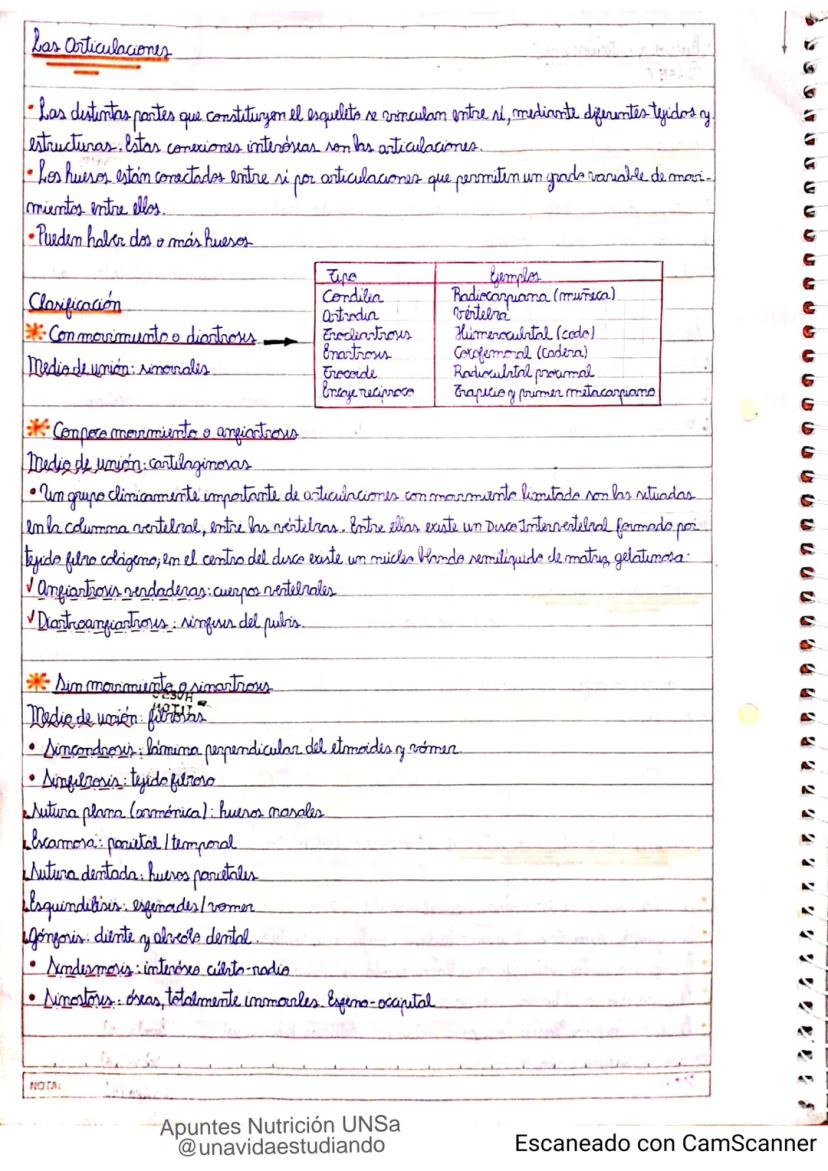 Las Articulaciones
• Las distintas partes que constituyen el esqueleto se vinculan entre sí, mediante diferentes tejidos y
estructuras. Estas conexiones interóseas son las articulaciones.
• Los huesos están conectados entre si por articulaciones que permiten un grado variable de movi-
mientos entre ellos.
• Pueden haber dos o más huesos
Tipo Ejemplos
Condilia Radiocarpiana (muñeca)
Artrodia Vértebra
Trocleartrosis Húmerocubital (codo)
Enartrosis Coxofemoral (Cadera)
Trocoide Radiocubital proximal
Encaje reciproco Trapecio y primer metacarpiano
Clasificación
* Con movimiento o diartrosis →
Medio de unión: sinoviales
* Con poco movimiento o anfiartrosis
Medio de unión: cartilaginosas
• Un grupo clínicamente importante de articulaciones con movimiento limitado son las situadas
en la columna vertebral, entre las vértebras. Entre ellas existe un Disco Intervertebral formado por
tejido fibro colágeno; en el centro del disco existe un núcleo blando semilíquido de matriz gelatinosa.
✓ Anfiartrosis verdaderas: cuerpos vertebrales
✓ Diartroanfiartrosis: sínfisis del pubis.
* Sin movimiento o sinartrosis
Medio de unión: fibrosas
• Sincondrosis: lámina perpendicular del etmoides y vómer.
• Sinfibrosis: tejido fibroso
Sutura plana (armónica): huesos nasales
Escamosa: parietal / temporal
Sutura dentada: huesos parietales
Esquindilisis: esfenoides / vomer
Gónfosis: diente y alvéolo dental.
• Sindesmosis: interóseo cúbito-radio
• Sinostosis: óseas, totalmente inmoviles. Esfeno-occipital
NOTA:
Apuntes Nutrición UNSa
@unavidaestudiando
Escaneado con CamScanner